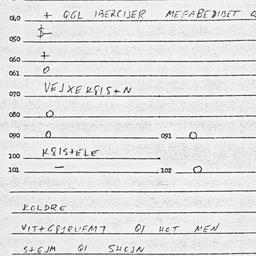 040 + QGL IBERCIJER MEFABEDIBET
050 $-
060 +
061 0
070 VEJXEK8IS+N
080 0
090 0 091 0
100 K8IS+ELE
101 - 102 0
KOLDRE
VIT+G81RUFM7 QI HOT MEN
S+EJM QI SHOJN